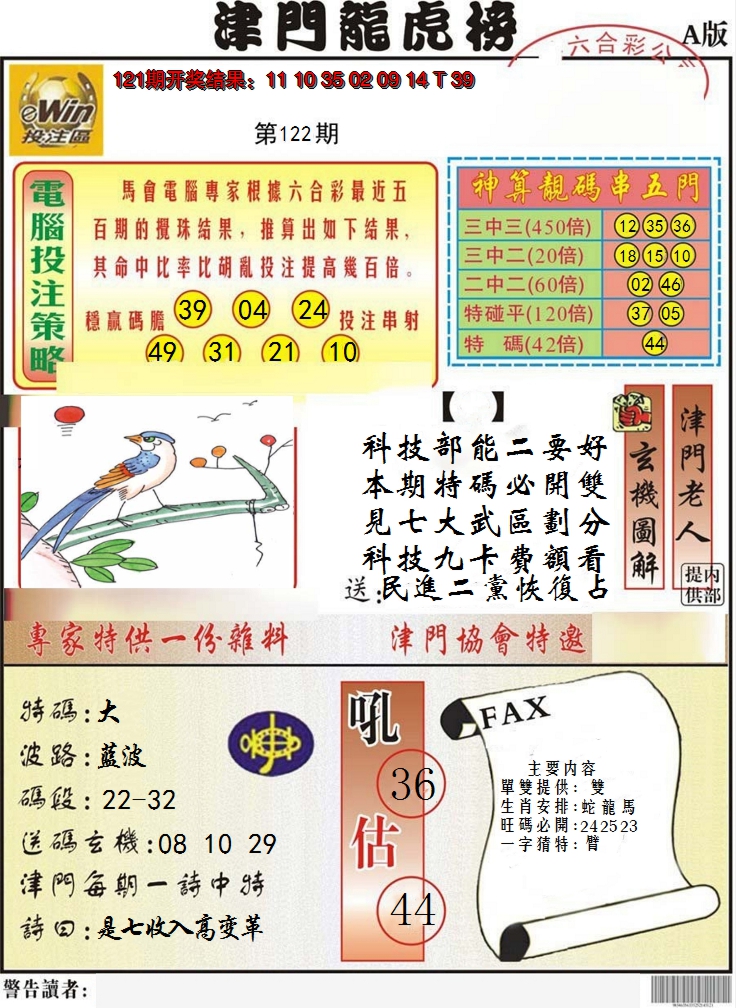 津門龍虎榜
A版
六合彩公
eWin
投注區
121期开奖结果：11 10 35 02 09 14 T 39
第122期
電腦投注策略
馬會電腦專家根據六合彩最近五
百期的攪珠结果，推算出如下结果，
其命中比率比胡亂投注提高幾百倍。
穩贏碼膽 39 04 24 投注串射
49 31 21 10
神算靚碼串五門
三中三(450倍) 12 35 36
三中二(20倍) 18 15 10
二中二(60倍) 02 46
特碰平(120倍) 37 05
特 碼(42倍) 44
科技部能二要好
本期特碼必開雙
見七大武區劃分
科技九卡費額看
送:民進二黨恢復占
玄機圖解
津門老人
内部提供
專家特供一份雜料
津門協會特邀
特碼:大
波路:藍波
碼段:22-32
送碼玄機:08 10 29
津門每期一詩中特
詩曰:是七收入高变革
吼
36
估
44
FAX
主要内容
單雙提供：雙
生肖安排:蛇龍馬
旺碼必開:242523
一字猜特：臂
警告讀者: